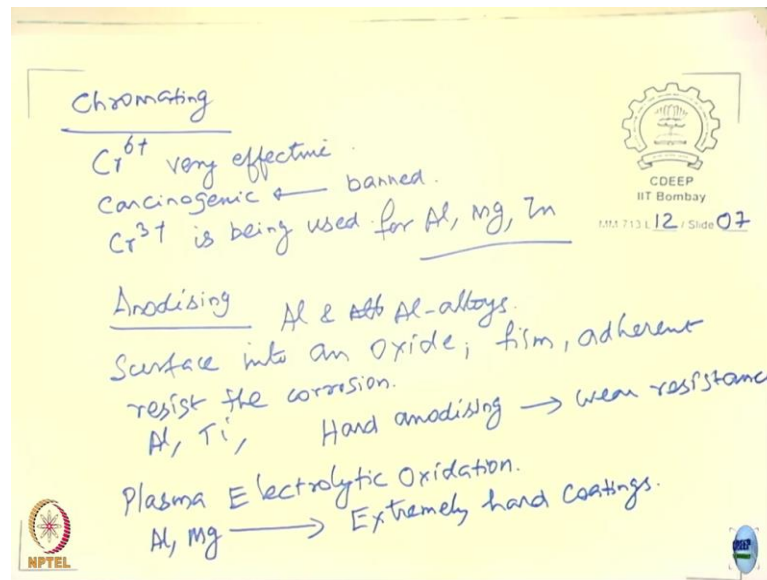 Chromating
Cr6+ very effective.
Carcinogenic ← banned.
Cr3+ is being used for Al, Mg, Zn
CDEEP
IIT Bombay
MM 713 L 12 / Slide 07
Anodising Al & Al-alloys.
Surface into an oxide; film, adherent
resist the corrosion.
Al, Ti, Hard anodising → wear resistance
Plasma Electrolytic Oxidation.
Al, Mg → Extremely hard coatings.
NPTEL